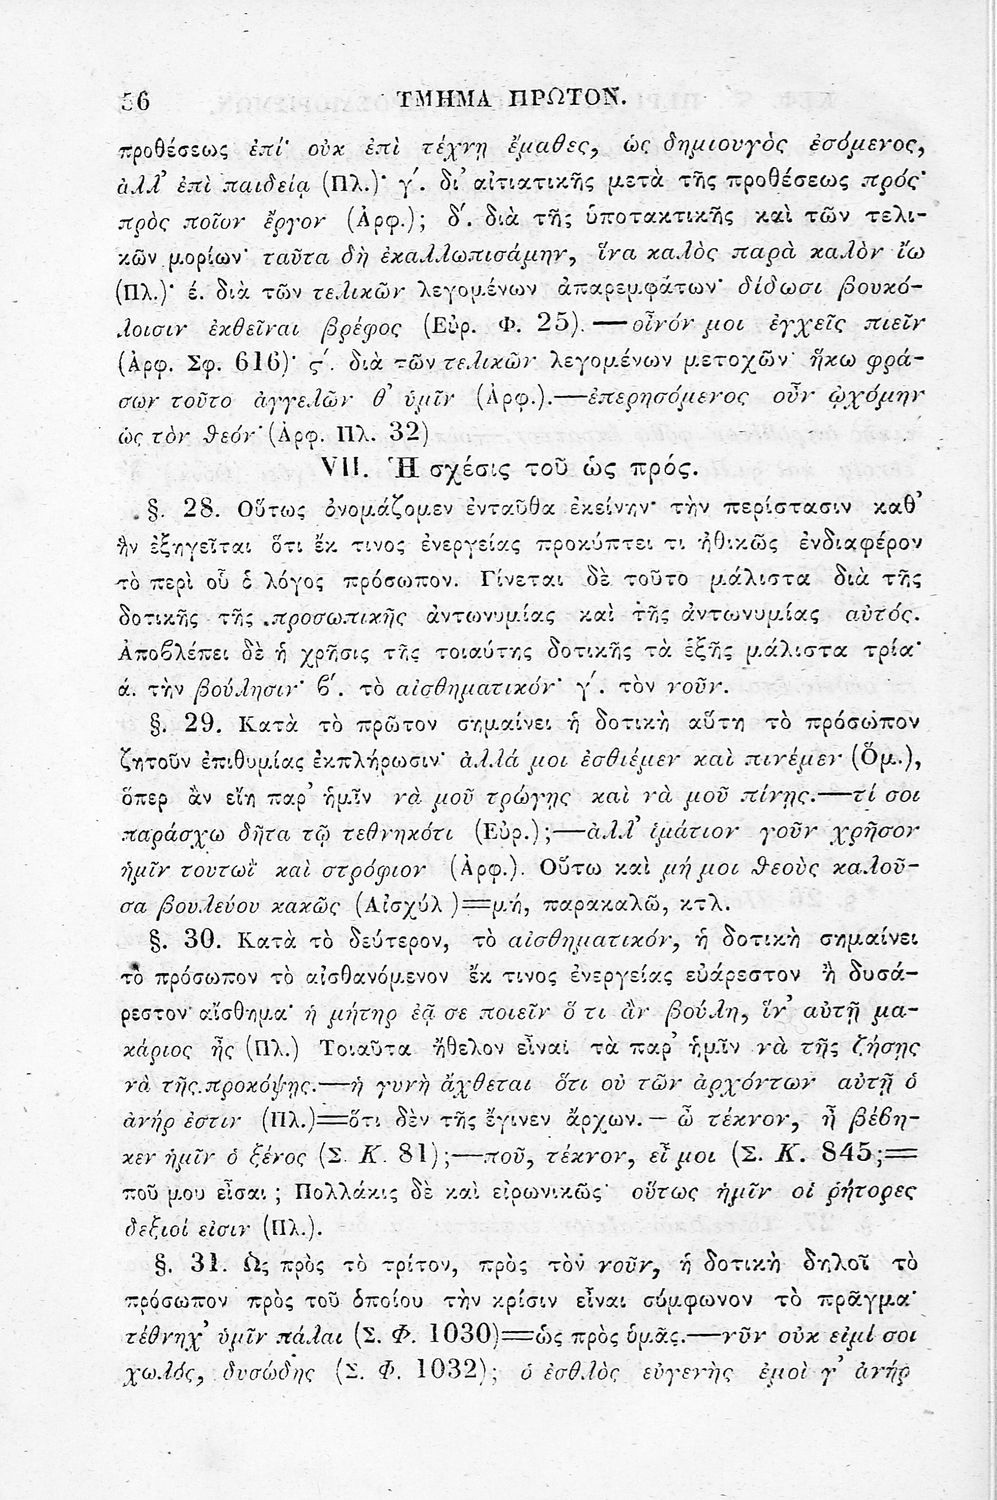 56 ΤΜΗΜΑ ΠΡΩΤΟΝ.
προθέσεως ἐπί· οὐκ ἐπὶ τέχνῃ ἔμαθες, ὡς δημιουγὸς ἐσόμενος,
ἀλλ’ ἐπὶ παιδείᾳ (Πλ.)· γ΄. δι’ αἰτιατικῆς μετὰ τῆς προθέσεως πρός·
πρὸς ποῖον ἔργον (Ἀρφ.); δ΄. διὰ τῆς ὑποτακτικῆς καὶ τῶν τελι-
κῶν μορίων· ταῦτα δὴ ἐκαλλωπισάμην, ἵνα καλὸς παρὰ καλὸν ἴω
(Πλ.)· έ. διὰ τῶν τελικῶν λεγομένων ἀπαρεμφάτων· δίδωσι βουκό-
λοισιν ἐκθεῖναι βρέφος (Εὐρ. Φ. 25).—οἶνόν μοι ἐγχεῖς πιεῖν
(Ἀρφ. Σφ. 616)· ϛ΄. διὰ τῶν τελικῶν λεγομένων μετοχῶν· ἥκω φρά-
σων τοῦτο ἀγγελῶν θ’ ὑμῖν (Ἀρφ.).—ἐπερησόμενος οὖν ᾠχόμην
ὡς τὸν θεόν· (Ἀρφ. Πλ. 32)
VII. Ἡ σχέσις τοῦ ὡς πρός.
§. 28. Οὕτως ὀνομάζομεν ἐνταῦθα ἐκείνην· τὴν περίστασιν καθ’
ἣν ἐξηγεῖται ὅτι ἔκ τινος ἐνεργείας προκύπτει τι ἠθικῶς ἐνδιαφέρον
τὸ περὶ οὗ ὁ λόγος πρόσωπον. Γίνεται δὲ τοῦτο μάλιστα διὰ τῆς
δοτικῆς τῆς προσωπικῆς ἀντωνυμίας καὶ τῆς ἀντωνυμίας αὐτός.
Ἀποβλέπει δὲ ἡ χρῆσις τῆς τοιαύτης δοτικῆς τὰ ἑξῆς μάλιστα τρία·
ά. τὴν βούλησιν· β΄. τὸ αἰσθηματικόν· γ΄. τὸν νοῦν.
§. 29. Κατὰ τὸ πρῶτον σημαίνει ἡ δοτικὴ αὕτη τὸ πρόσωπον
ζητοῦν ἐπιθυμίας ἐκπλήρωσιν· ἀλλά μοι ἐσθιέμεν καὶ πινέμεν (Ὅμ.),
ὅπερ ἂν εἴη παρ’ ἡμῖν νὰ μοῦ τρώγῃς καὶ νὰ μοῦ πίνῃς.—τί σοι
παράσχω δῆτα τῷ τεθνηκότι (Εὐρ.);—ἀλλ’ ἱμάτιον γοῦν χρῆσον
ἡμῖν τουτωῒ καὶ στρόφιον (Ἀρφ.). Οὕτω καὶ μή μοι θεοὺς καλοῦ-
σα βουλεύου κακῶς (Αἰσχύλ)=μή, παρακαλῶ, κτλ.
§. 30. Κατὰ τὸ δεύτερον, τὸ αἰσθηματικόν, ἡ δοτικὴ σημαίνει
τὸ πρόσωπον τὸ αἰσθανόμενον ἔκ τινος ἐνεργείας εὐάρεστον ἢ δυσά-
ρεστον αἴσθημα· ἡ μήτηρ ἐᾷ σε ποιεῖν ὅ τι ἂν βούλῃ, ἵν’ αὐτῇ μα-
κάριος ᾖς (Πλ.) Τοιαῦτα ἤθελον εἶναι τὰ παρ’ ἡμῖν νὰ τῆς ζήσῃς
νὰ τῆς προκόψῃς.—ἡ γυνὴ ἄχθεται ὅτι οὐ τῶν ἀρχόντων αὐτῇ ὁ
ἀνήρ ἐστιν (Πλ.)=ὅτι δὲν τῆς ἔγινεν ἄρχων.—ὦ τέκνον, ἦ βέβη-
κεν ἡμῖν ὁ ξένος (Σ. Κ. 81);—ποῦ, τέκνον, εἶ μοι (Σ. Κ. 845;=
ποῦ μου εἶσαι; Πολλάκις δὲ καὶ εἰρωνικῶς· οὕτως ἡμῖν οἱ ῥήτορες
δεξιοί εἰσιν (Πλ.).
§. 31. Ὡς πρὸς τὸ τρίτον, πρὸς τὸν νοῦν, ἡ δοτικὴ δηλοῖ τὸ
πρόσωπον πρὸς τοῦ ὁποίου τὴν κρίσιν εἶναι σύμφωνον τὸ πρᾶγμα·
τέθνηχ’ ὑμῖν πάλαι (Σ. Φ. 1030)=ὡς πρὸς ὑμᾶς.—νῦν οὐκ εἰμί σοι
χωλός, δυσώδης (Σ. Φ. 1032); ὁ ἐσθλὸς εὐγενὴς ἐμοὶ γ’ ἀνήρ